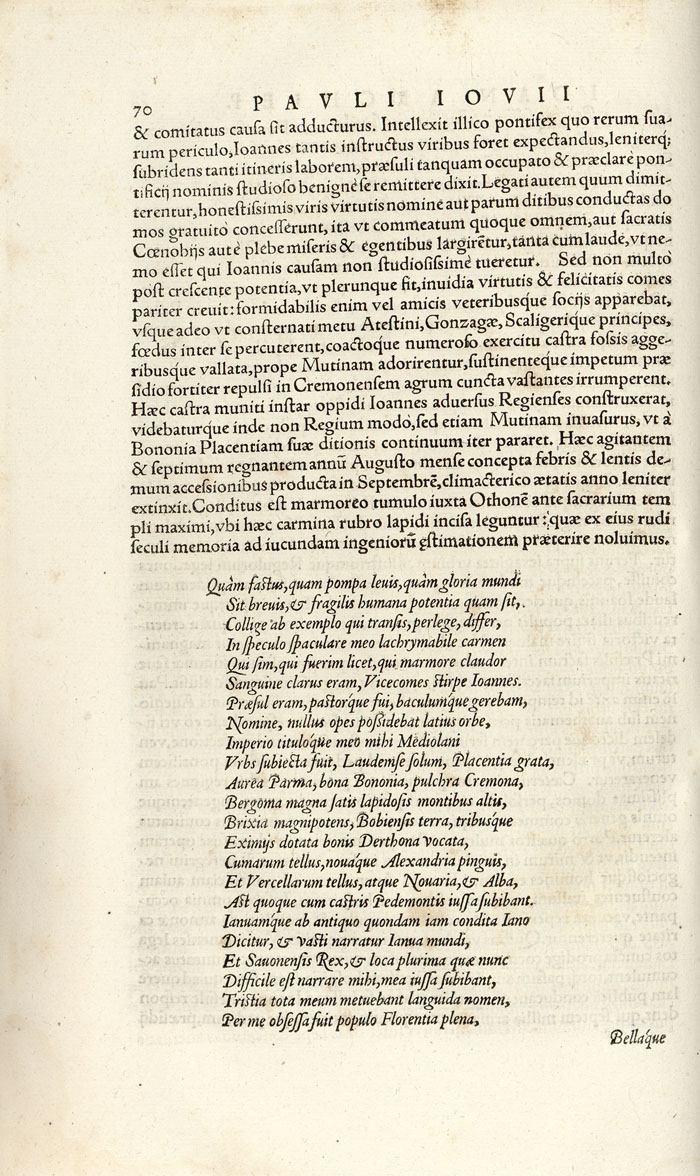 70
PAVLI IOVII
& comitatus causa sit adducturus. Intellexit illico pontifex quo rerum sua-
rum periculo, Ioannes tantis instructus viribus foret expectandus, leniterq;
subridens tanti itineris laborem, præsuli tanquam occupato & præclarè pon-
tificij nominis studioso benignè se remittere dixit. Legati autem quum dimit-
terentur, honestissimis viris virtutis nomine aut parum ditibus conductas do
mos gratuitò concesserunt, ita vt commeatum quoque omnem, aut sacratis
Cœnobijs aut è plebe miseris & egentibus largirẽtur, tanta cum laude, vt ne-
mo esset qui Ioannis causam non studiosissimè tueretur. Sed non multò
pòst crescente potentia, vt plerunque fit, inuidia virtutis & felicitatis comes
pariter creuit: formidabilis enim vel amicis veteribusque socijs apparebat,
vsque adeo vt consternati metu Atestini, Gonzagæ, Scaligerique principes,
fœdus inter se percuterent, coactoque numeroso exercitu castra fossis agge-
ribusque vallata, prope Mutinam adorirentur, sustinenteque impetum præ
sidio fortiter repulsi in Cremonensem agrum cuncta vastantes irrumperent.
Hæc castra muniti instar oppidi Ioannes aduersus Regienses construxerat,
videbaturque inde non Regium modò, sed etiam Mutinam inuasurus, vt à
Bononia Placentiam suæ ditionis continuum iter pararet. Hæc agitantem
& septimum regnantem annũ Augusto mense concepta febris & lentis de-
mum accessionibus producta in Septembrẽ, climacterico ætatis anno leniter
extinxit. Conditus est marmoreo tumulo iuxta Othonẽ ante sacrarium tem
pli maximi, vbi hæc carmina rubro lapidi incisa leguntur: quæ ex eius rudi
seculi memoria ad iucundam ingeniorũ ęstimationem præterire noluimus.
Quàm fastus, quam pompa leuis, quàm gloria mundi
Sit breuis, & fragilis humana potentia quam sit,
Collige ab exemplo qui transis, perlege, differ,
In speculo spaculare meo lachrymabile carmen
Qui sim, qui fuerim licet, qui marmore claudor
Sanguine clarus eram, Vicecomes stirpe Ioannes.
Præsul eram, pastórque fui, baculumque gerebam,
Nomine, nullus opes possidebat latius orbe,
Imperio titulóque meo mihi Mediolani
Vrbs subiecta fuit, Laudense solum, Placentia grata,
Aurea Parma, bona Bononia, pulchra Cremona,
Bergoma magna satis lapidosis montibus altis,
Brixia magnipotens, Bobiensis terra, tribusque
Eximijs dotata bonis Derthona vocata,
Cumarum tellus, nouáque Alexandria pinguis,
Et Vercellarum tellus, atque Nouaria, & Alba,
Ast quoque cum castris Pedemontis iussa subibant.
Ianuámque ab antiquo quondam iam condita Iano
Dicitur, & vasti narratur Ianua mundi,
Et Sauonensis Rex, & loca plurima quæ nunc
Difficile est narrare mihi, mea iussa subibant,
Tristia tota meum metuebant languida nomen,
Per me obsessa fuit populo Florentia plena,
Belláque